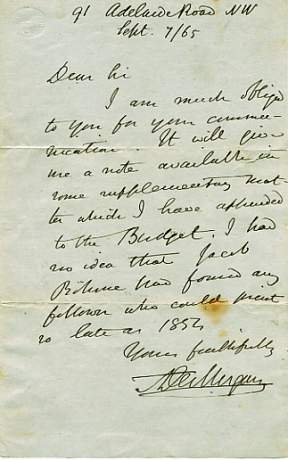 91 Adelaide Road NW
Sept. 7/65
Dear Sir
I am much obliged
to you for your commu-
nication. It will give
me a note available in
some supplementary mat-
ter which I have appended
to the Budget. I had
no idea that Jacob
Böhme had found any
follower who could print
so late as 1854
Yours faithfully
A De Morgan